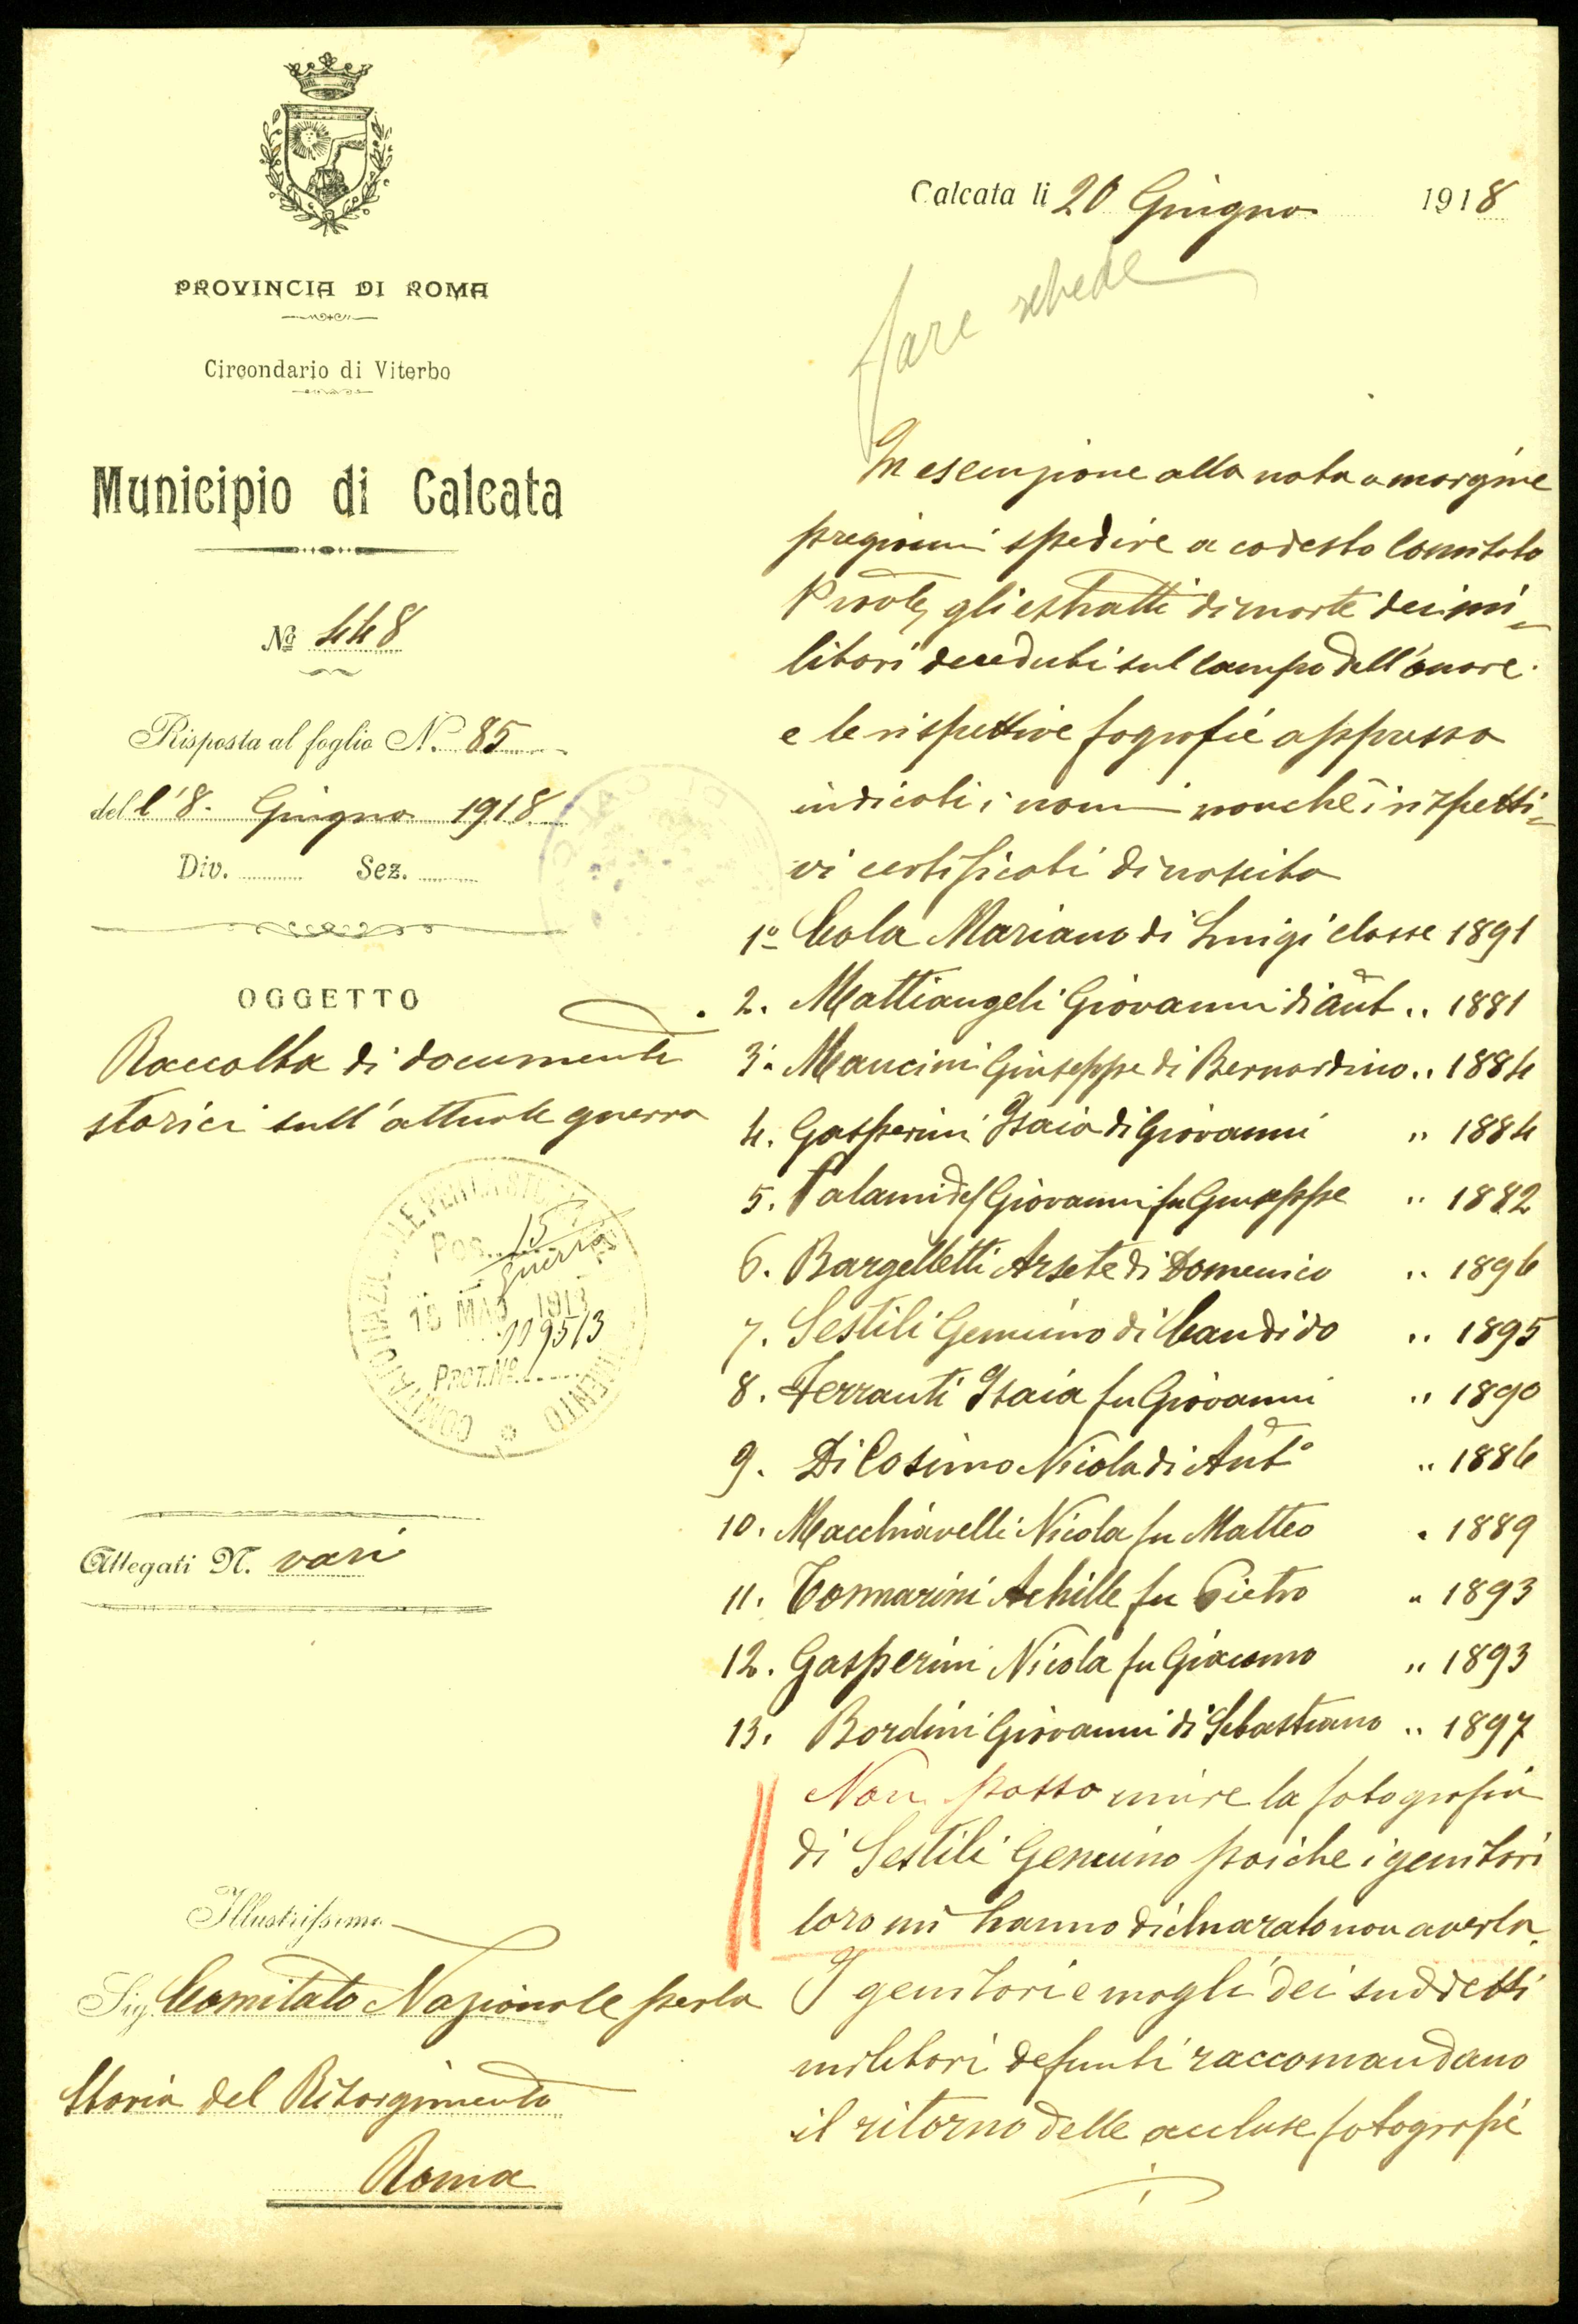 PROVINCIA DI ROMA
Circondario di Viterbo
Municipio di Calcata
No 448
Risposta al foglio N. 85
dell'8. Giugno 1918
Div. Sez.
OGGETTO
Raccolta di documenti
storici sull'attuale guerra
COMITATO NAZIONALE PER LA STORIA DEL RISORGIMENTO
Pos. 15
guerra
MAG 191
PROT. No
Allegati N. vari
Illustrissimo
Sig Comitato Nazionale per la
Storia del Risorgimento
Roma
Calcata li 20 Giugno 1918
fare schede
In esecuzione alla nota a margine
pregiomi spedire a codesto Comitato
gli estratti di morte dei mi=
litari deceduti sul campo dell'onore
e le rispettive fografie appresso
indicati i nomi nonchè i rispetti=
vi certificati di nascita
1o Cola Mariano di Luigi classe 1891
2. Mattiangeli Giovanni di Ant .. 1881
3. Mancini Giuseppe di Bernardino .. 1884
4. Gasperini Isaia di Giovanni " 1884
5. Palamides Giovanni fu Giuseppe " 1882
6. Bargelletti Arsete di Domenico " 1896
7. Sestili Genuino di Candido .. 1895
8. Ferranti Isaia fu Giovanni " 1890
9. Di Cosimo Nicola di Anto " 1886
10. Macchiavelli Nicola fu Matteo " 1889
11. Connarini Achille fu Pietro " 1893
12. Gasperini Nicola fu Giacomo " 1893
13. Bordini Giovanni di Sebastiano .. 1897
Non posso unire la fotografia
di Sestili Genuino poiche i genitori
loro mi hanno dichiarato non averla.
I genitori e mogli dei suddetti
militari defunti raccomandano
il ritorno delle accluse fotografie